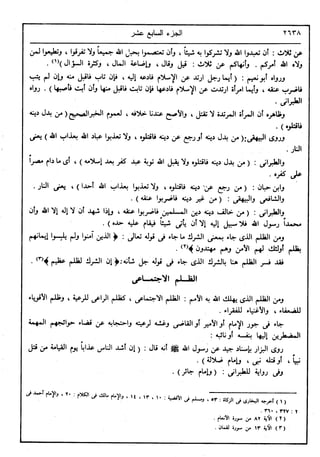 ٢٦٣٨ الجزء السابع عشر
عن ثلاث : أن تعبدوا الله ولا تشركوا به شيئاً ، وأن تعتصموا بحبل الله جميعاً ولا تفرقوا ، وتطيعوا لمن
ولاه الله أمركم . وأنهاكم عن ثلاث : قيل وقال ، وإضاعة المال ، وكثرة السؤال )(١) .
ورواه أبو نعيم : ( أيما رجل ارتد عن الإسلام فادعه إليه ، فإن تاب فاقبل منه وإن لم يتب
فاضرب عنقه ، وأيما امرأة ارتدت عن الإسلام فادعها فإن تابت فاقبل منها وأن أبت فأصبها ) . رواه
الطبرانى .
وظاهره أن المرأة المرتدة لا تقتل ، والأصح عندنا خلافه ، لعموم الخبر الصحيح ( من بدل دينه
فاقتلوه ) .
وروى البيهقى : ( من بدل دينه أو رجع عن دينه فاقتلوه ، ولا تعذبوا عباد الله بعذاب الله ) يعنى
النار .
والطبرانى : ( من بدل دينه فاقتلوه ولا يقبل الله توبة عبد كفر بعد إسلامه ) ، أى ما دام مصراً
على كفره .
وابن حبان : ( من رجع عن دينه فاقتلوه ، ولا تعذبوا بعذاب الله أحدا ) ، يعنى النار .
والشافعى والبيهقى : ( من غير دينه فاضربوا عنقه ) .
والطبرانى : ( من خالف دينه دين المسلمين فاضربوا عنقه ، وإذا شهد أن لا إله إلا الله وأن
محمداً رسول الله فلا سبيل إليه إلا أن يأتى شيئاً فيقام عليه حده ) .
ومن الظلم الذى جاء بمعنى الشرك ما جاء فى قوله تعالى : ﴿ الذين آمنوا ولم يلبسوا إيمانهم
بظلم أولئك لهم الأمن وهم مهتدون ﴾(٢) .
فقد فسر الظلم هنا بالشرك الذى جاء فى قوله جل شأنه : ﴿ إن الشرك لظلم عظيم ﴾(٣) .
الظلم الاجتماعى
ومن الظلم الذى يهلك الله به الأمم : الظلم الاجتماعى ، كظلم الراعى للرعية ، وظلم الأقوياء
للضعفاء ، والأغنياء للفقراء .
جاء فى جور الإمام أو الأمير أو القاضى وغشه لرعيته واحتجابه عن قضاء حوائجهم المهمة
المضطرين إليها بنفسه أو نائبه :
روى البزار بإسناد جيد عن رسول الله ﷺ أنه قال : ( إن أشد الناس عذاباً يوم القيامة من قتل
نبياً ، أو قتله نبى ، وإمام ضلالة ) .
وفى رواية للطبرانى : ( وإمام جائر ) .
(١) أخرجه البخارى فى الزكاة : ٥٣ ، ومسلم فى الأقضية : ١٠ ، ١٣ ، ١٤ ، والإمام مالك فى الكلام : ٢٠ ، والإمام أحمد فى
٢ : ٣٢٧ ، ٣٦٠ .
(٢) الآية ٨٢ من سورة الأنعام .
(٣) الآية ١٣ من سورة لقمان .